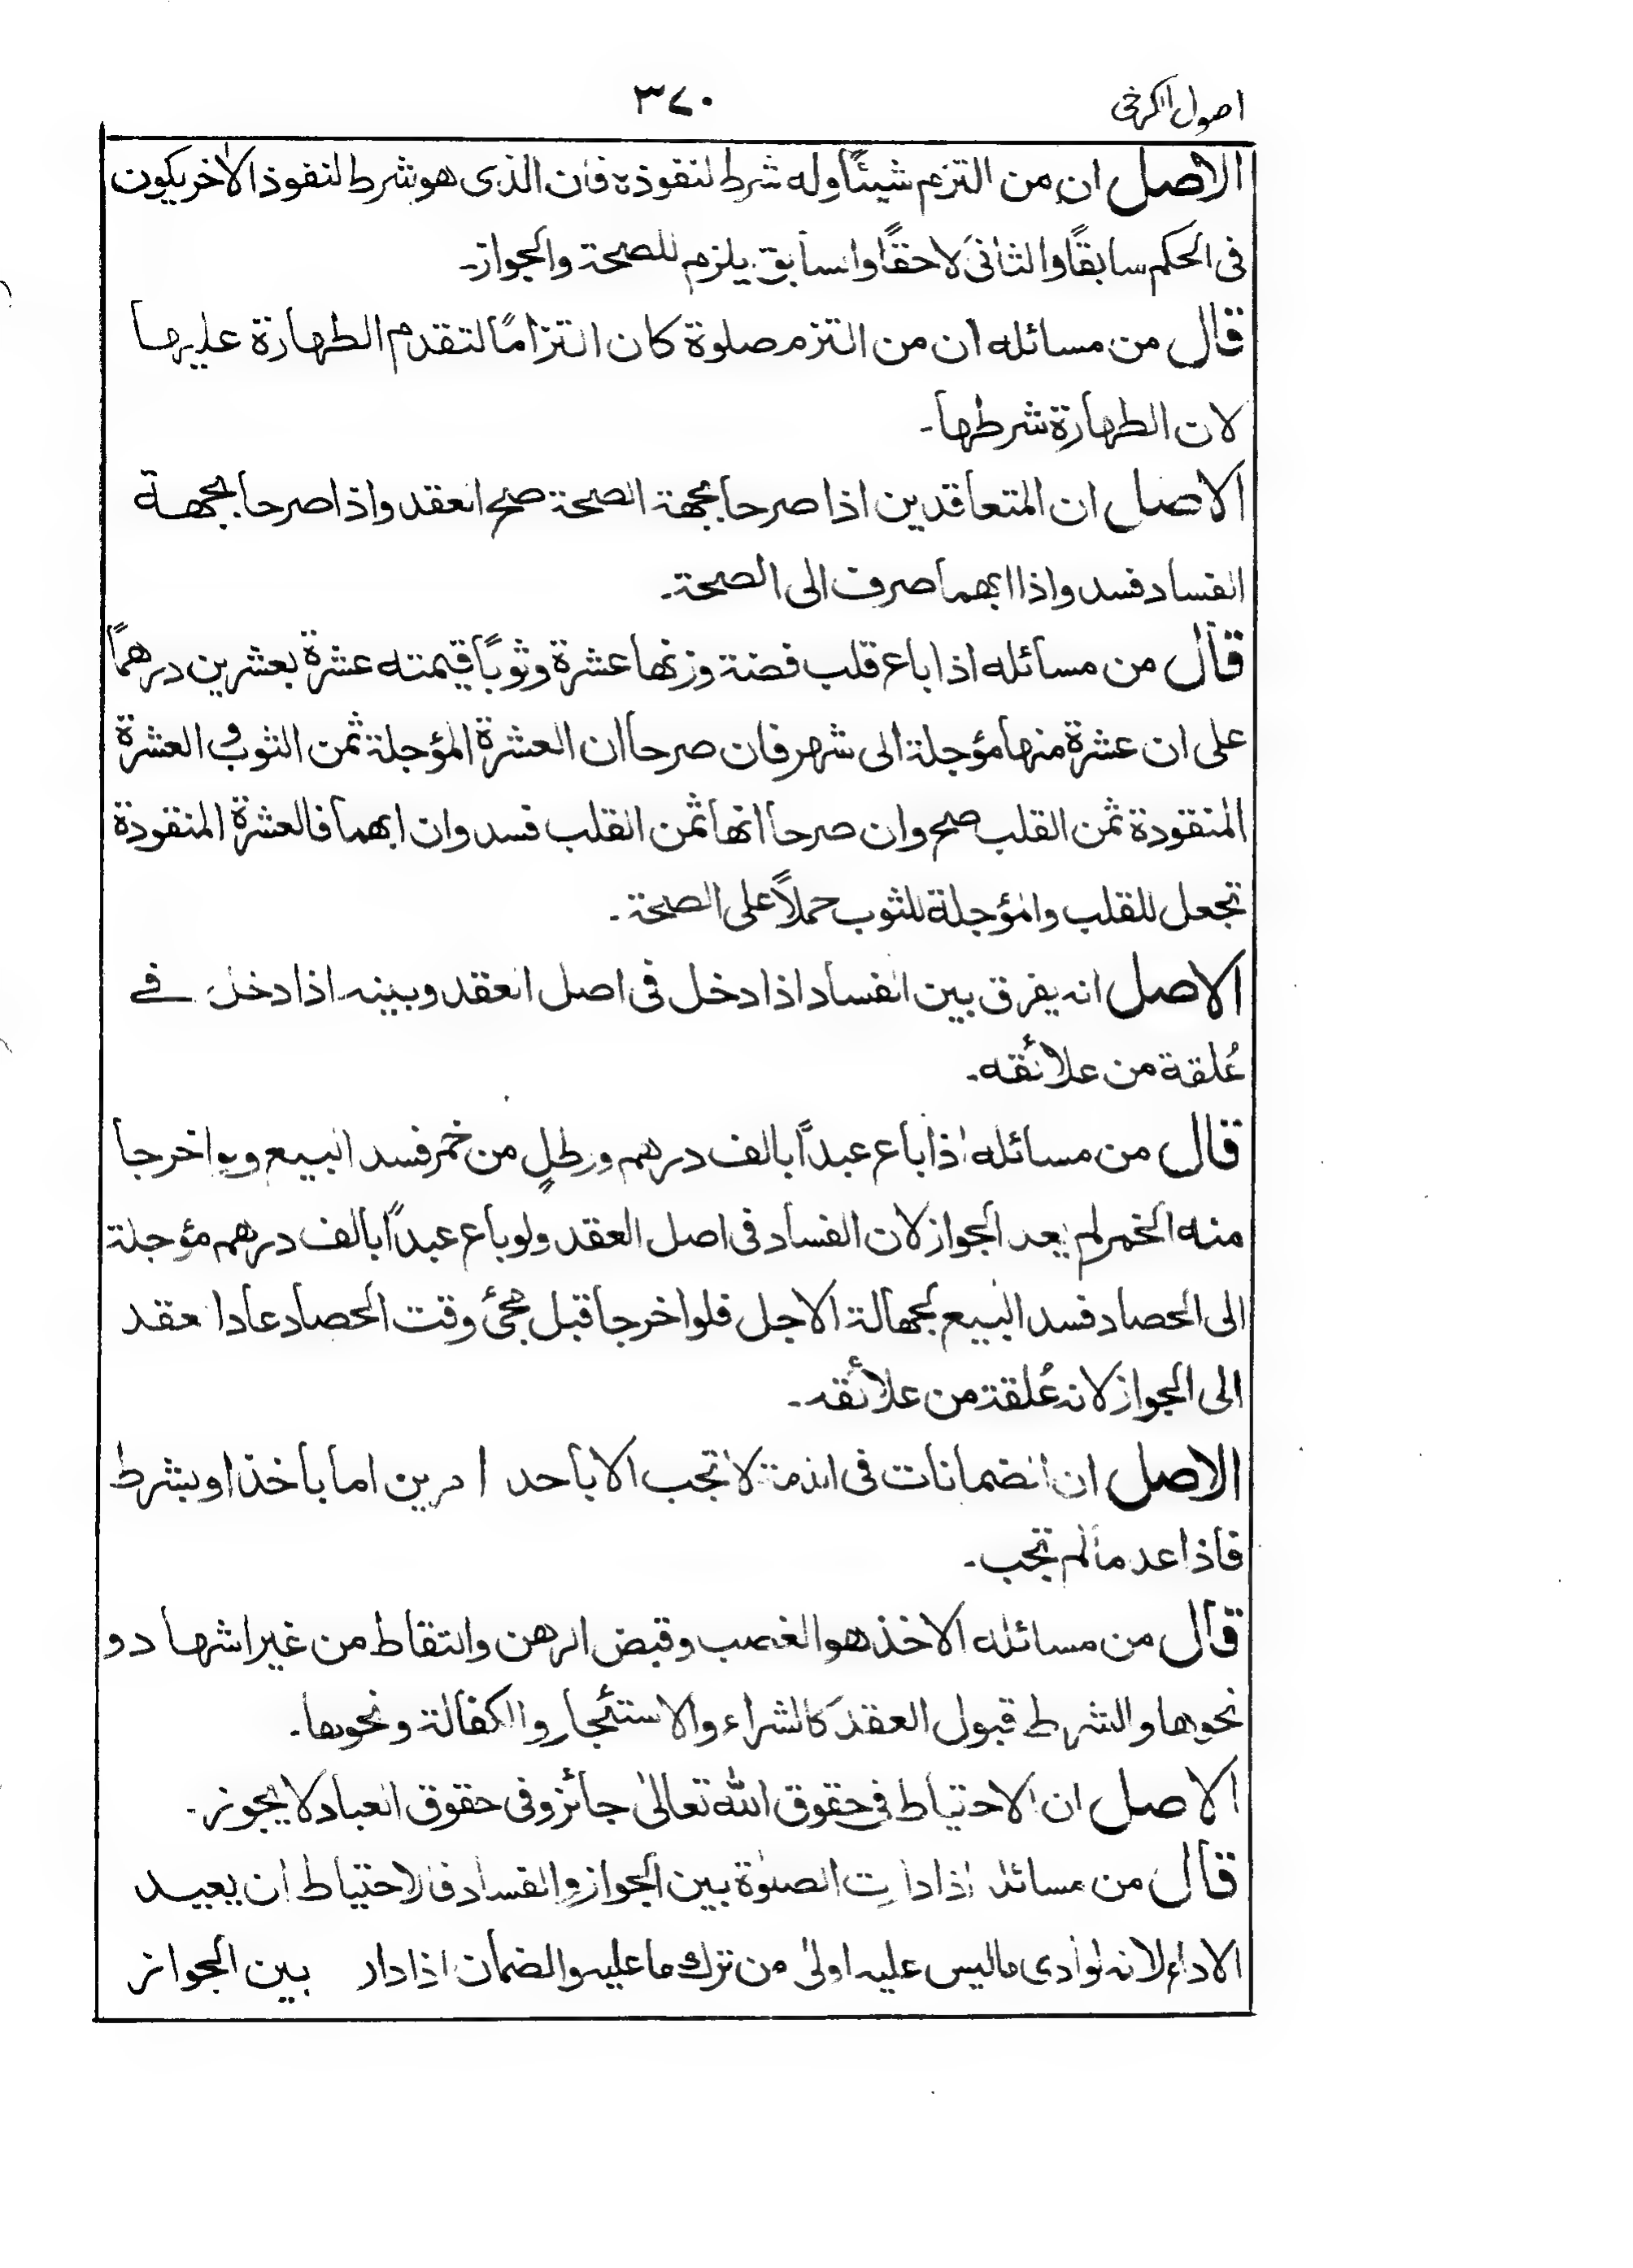 اصول الكرخی
۳۷۰
الاصل ان من التزم شیئًا وله شرط لنفوذه فان الذی هو شرط لنفوذ الاٰخر یکون
فی الحکم سابقًا والثانی لاحقًا والسابق یلزم للصحة والجواز۔
قال من مسائله ان من التزم صلوة کان التزامًا لتقدم الطهارة علیها
لان الطهارة شرطها۔
الاصل ان المتعاقدین اذا صرحا بجهة الصحة صح العقد واذا صرحا بجهة
الفساد فسد واذا ابهما صرف الی الصحة۔
قال من مسائله اذا باع قلب فضة وزنها عشرة وثوبًا قیمته عشرة بعشرین درهمًا
علی ان عشرة منها مؤجلة الی شهر فان صرحا ان العشرة المؤجلة ثمن الثوب و العشرة
المنقودة ثمن القلب صح وان صرحا انها ثمن القلب فسد وان ابهما فالعشرة المنقودة
تجعل للقلب والمؤجلة للثوب حملًا علی الصحة۔
الاصل انه یفرق بین الفساد اذا دخل فی اصل العقد وبینه اذا دخل فے
عُلقة من علائقه۔
قال من مسائله اذا باع عبدًا بالف درهم ورطلٍ من خمر فسد البیع ولو اخرجا
منه الخمر لم یعد الجواز لان الفساد فی اصل العقد ولو باع عبدًا بالف درهم مؤجلة
الی الحصاد فسد البیع لجهالة الاجل فلو اخرجا قبل مجئ وقت الحصاد عاد العقد
الی الجواز لانه عُلقة من علائقه۔
الاصل ان الضمانات فی الذمة لا تجب الا باحد الامرین اما باخذ او بشرط
فاذا عدما لم تجب۔
قال من مسائله الاخذ هو الغصب وقبض الرهن والتقاط من غیر اشهاد و
نحوها والشرط قبول العقد کالشراء والاستئجار والکفالة ونحوها۔
الاصل ان الاحتیاط فی حقوق الله تعالیٰ جائز وفی حقوق العباد لا یجوز۔
قال من مسائله اذا دارتِ الصلوٰة بین الجواز والفساد فالاحتیاط ان یعید
الاداء لانه لو ادی ما لیس علیه اولیٰ من ترك ما علیه والضمان اذا دار بین الجواز